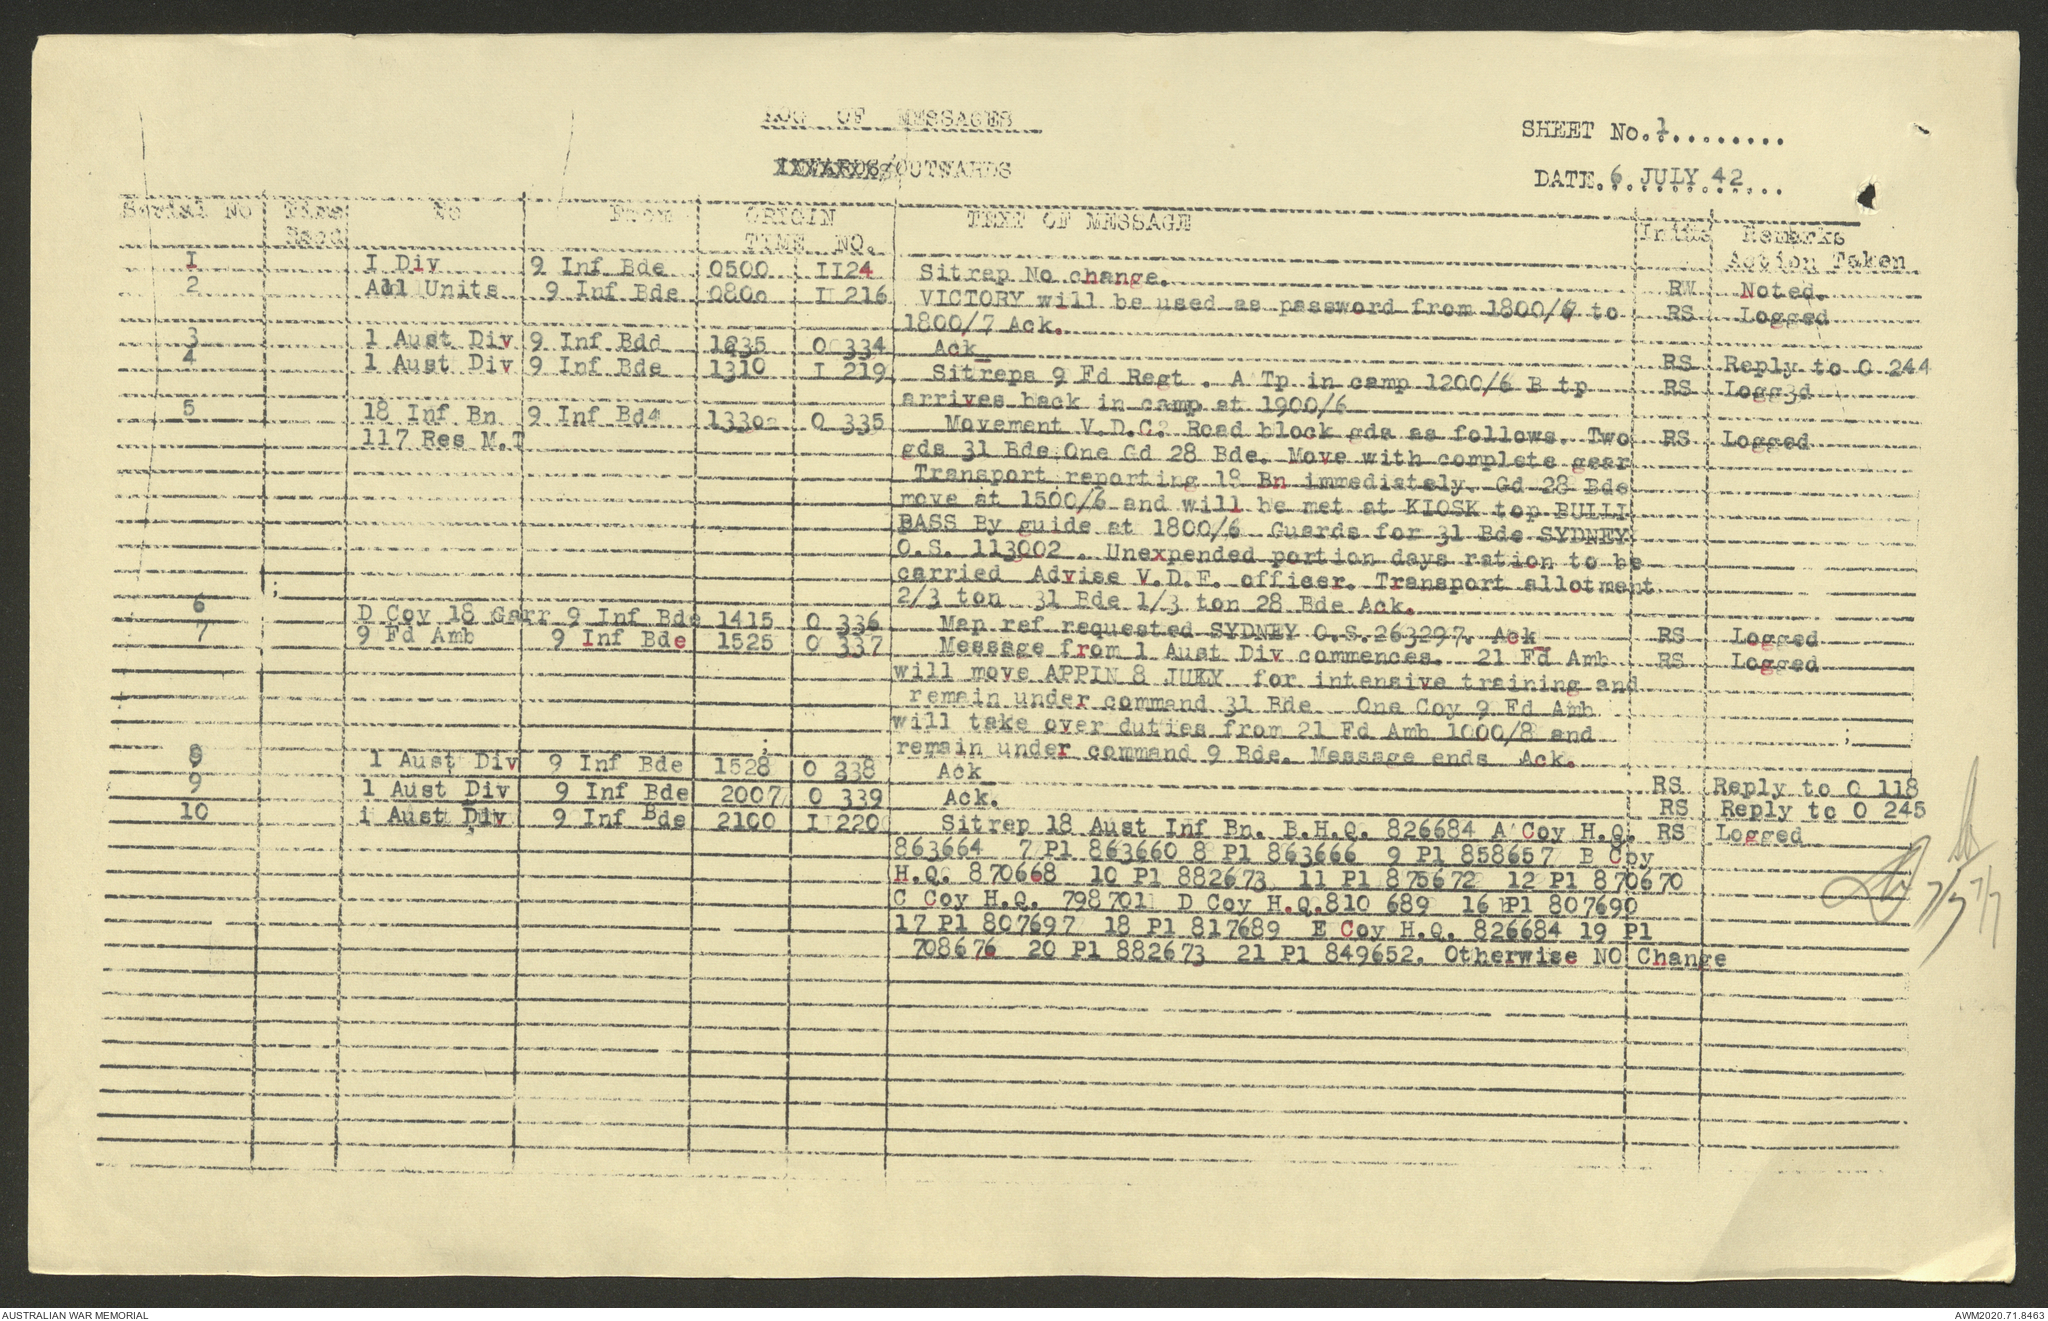 LOG OF MESSAGES
SHEET No.1.........
INWARDS/OUTWARDS
DATE.6 JULY 42....
Serial No Time To From ORIGIN TEXT OF MESSAGE Inits Remarks
Recd TIME NO. Action Taken
1 I Div 9 Inf Bde 0500 II24 Sitrep No change. RW Noted.
2 All Units 9 Inf Bde 0800 I 216 VICTORY will be used as password from 1800/6 to RS Logged
1800/7 Ack.
3 1 Aust Div 9 Inf Bdd 1235 O 334 Ack RS Reply to O 244
4 1 Aust Div 9 Inf Bde 1310 I 219 Sitreps 9 Fd Regt . A Tp in camp 1200/6 B tp RS Logg3d
arrives back in camp at 1900/6
5 18 Inf Bn 9 Inf Bd4 1330 O 335 Movement V.D.C. Road block gds as follows. Two RS Logged
117 Res M.T gds 31 Bde One Gd 28 Bde. Move with complete gear
Transport reporting 18 Bn immediately. Gd 28 Bde
move at 1500/6 and will be met at KIOSK top BULLI
BASS By guide at 1800/6 Guards for 31 Bde SYDNEY
O.S. 113002 . Unexpended portion days ration to be
carried Advise V.D.E. officer. Transport allotment
2/3 ton 31 Bde 1/3 ton 28 Bde Ack.
6 D Coy 18 Garr 9 Inf Bde 1415 O 336 Map ref requested SYDNEY O.S.263297. Ack RS Logged
7 9 Fd Amb 9 Inf Bde 1525 O 337 Message from 1 Aust Div commences. 21 Fd Amb RS Logged
will move APPIN 8 JUKY for intensive training and
remain under command 31 Bde One Coy 9 Fd Amb
will take over duties from 21 Fd Amb 1000/8 and
remain under command 9 Bde. Message ends Ack.
8 1 Aust Div 9 Inf Bde 1528 O 338 Ack RS Reply to O 118
9 1 Aust Div 9 Inf Bde 2007 O 339 Ack. RS Reply to O 245
10 1 Aust Div 9 Inf Bde 2100 I 220 Sitrep 18 Aust Inf Bn. B.H.Q. 826684 A Coy H.Q. RS Logged
863664 7 Pl 863660 8 Pl 863666 9 Pl 858657 B Coy
H.Q. 870668 10 Pl 882673 11 Pl 875672 12 Pl 870670
C Coy H.Q. 798701 D Coy H.Q.810 689 16 Pl 807690
17 Pl 807697 18 Pl 817689 E Coy H.Q. 826684 19 Pl
708676 20 Pl 882673 21 Pl 849652. Otherwise NO Change
7/7 7/7
AUSTRALIAN WAR MEMORIAL
AWM2020.71.8463